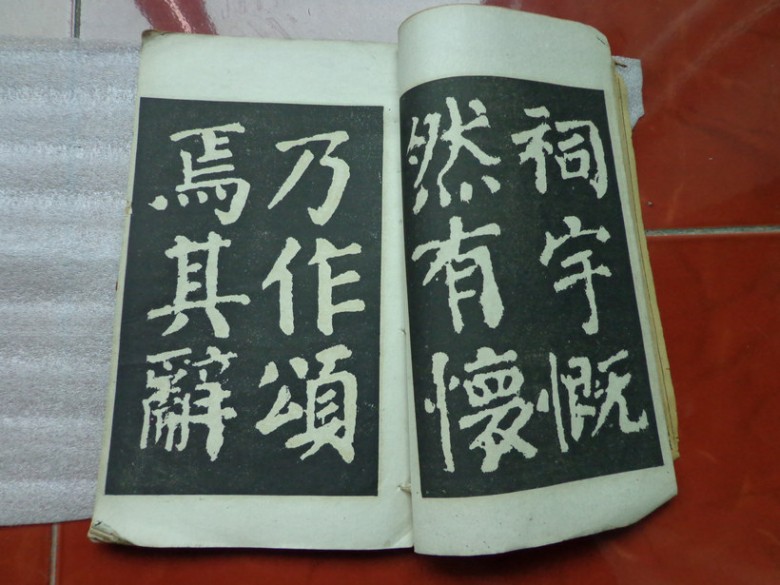 祠宇慨
然有懷
乃作頌
焉其辭